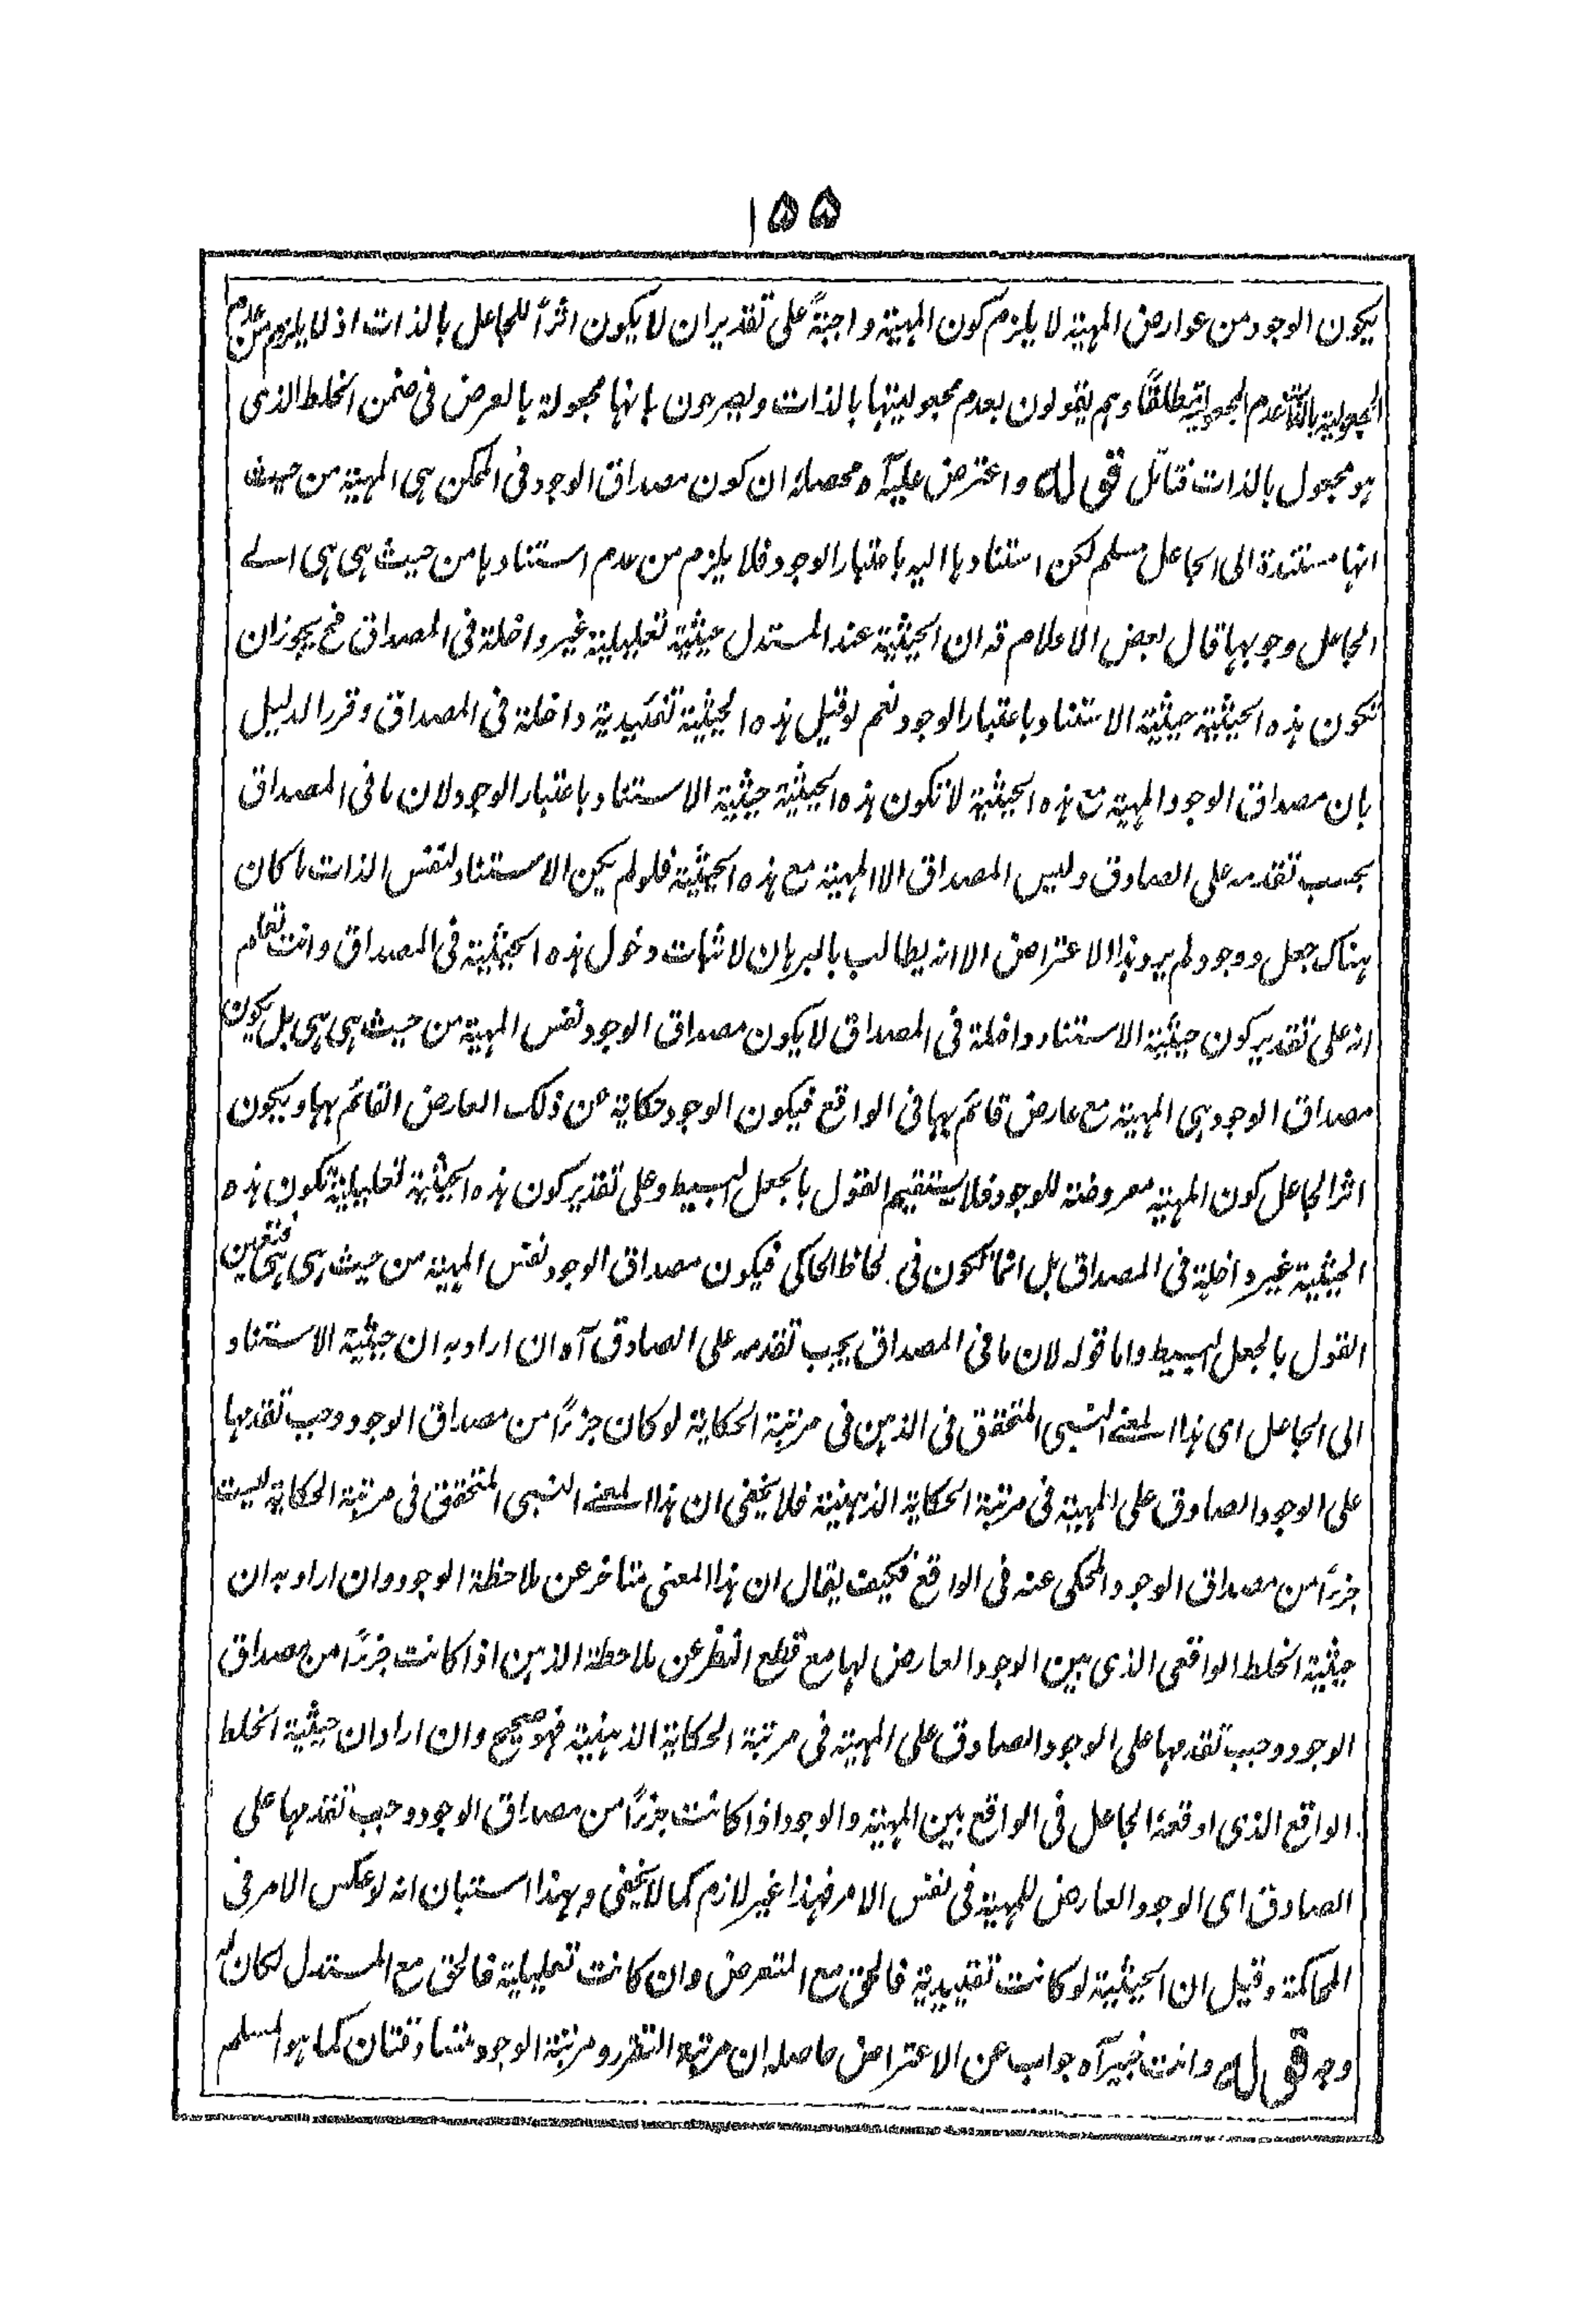 ۱۵۵
يكون الوجود من عوارض المهية لا يلزم كون المهية واجبةً على تقدير ان لا يكون اثرًا للجاعل بالذات اذ لا يلزم من عدم
المجعولية بالذات عدم المجعولية مطلقًا وهم يقولون بعدم مجعوليتها بالذات ويصرحون بانها مجعولة بالعرض فى ضمن الخلط الذى
هو مجعول بالذات فتأمل قوله واعترض عليه آه محصله ان كون مصداق الوجود فى الممكن هى المهية من حيث
انها مستندة الى الجاعل مسلم لكن استنادها اليه باعتبار الوجود فلا يلزم من عدم استنادها من حيث هى هى الے
الجاعل وجوبها قال بعض الاعلام قه ان الحيثية عند المستدل حيثية تعليلية غير داخلة فى المصداق فح يجوز ان
تكون هذه الحيثية حيثية الاستناد باعتبار الوجود نعم لو قيل هذه الحيثية تقييدية داخلة فى المصداق وقرر الدليل
بان مصداق الوجود المهية مع هذه الحيثية لا تكون هذه الحيثية حيثية الاستناد باعتبار الوجود لان ما فى المصداق
يجب تقدمه على الصادق وليس المصداق الا المهية مع هذه الحيثية فلو لم يكن الاستناد لنفس الذات ما كان
هناك جعل ووجود لم يرد هذا الاعتراض الا انه يطالب بالبرهان لاثبات دخول هذه الحيثية فى المصداق وانت تعلم
انه على تقدير كون حيثية الاستناد داخلة فى المصداق لا يكون مصداق الوجود نفس المهية من حيث هى هى بل يكون
مصداق الوجود هى المهية مع عارض قائم بها فى الواقع فيكون الوجود حكاية عن ذلك العارض القائم بها ويكون
اثر الجاعل كون المهية معروضة للوجود فلا يستقيم القول بالجعل البسيط وعلى تقدير كون هذه الحيثية تعليلية تكون هذه
الحيثية غير داخلة فى المصداق بل انما تكون فى لحاظ الحاكى فيكون مصداق الوجود نفس المهية من حيث هى هى فتعين
القول بالجعل البسيط واما قوله لان ما فى المصداق يجب تقدمه على الصادق آه ان اراد به ان حيثية الاستناد
الى الجاعل اى هذا المعنے النسبى المتحقق فى الذهن فى مرتبة الحكاية لو كان جزءًا من مصداق الوجود وجب تقدمها
على الوجود الصادق على المهية فى مرتبة الحكاية الذهنية فلا يخفى ان هذا المعنے النسبى المتحقق فى مرتبة الحكاية ليست
جزءًا من مصداق الوجود المحكى عنه فى الواقع فكيف يقال ان هذا المعنى متاخر عن ملاحظة الوجود وان اراد به ان
حيثية الخلط الواقعى الذى بين الوجود العارض لها مع قطع النظر عن ملاحظة الذهن اذا كانت جزءًا من مصداق
الوجود وجب تقدمها على الوجود الصادق على المهية فى مرتبة الحكاية الذهنية فهو صحيح وان اراد ان حيثية الخلط
الواقع الذى اوقعه الجاعل فى الواقع بين المهية والوجود اذا كانت جزءًا من مصداق الوجود وجب تقدمها على
الصادق اى الوجود العارض للمهية فى نفس الامر فهذا غير لازم كما لا يخفى وبهذا استبان انه لو عكس الامر فى
المحاكمة وقيل ان الحيثية لو كانت تقييدية فالحق مع المتعرض وان كانت تعليلية فالحق مع المستدل لكان له
وجه قوله وانت خبير آه جواب عن الاعتراض حاصله ان مرتبة التقرر ومرتبة الوجود متساوقتان كما هو المسلم